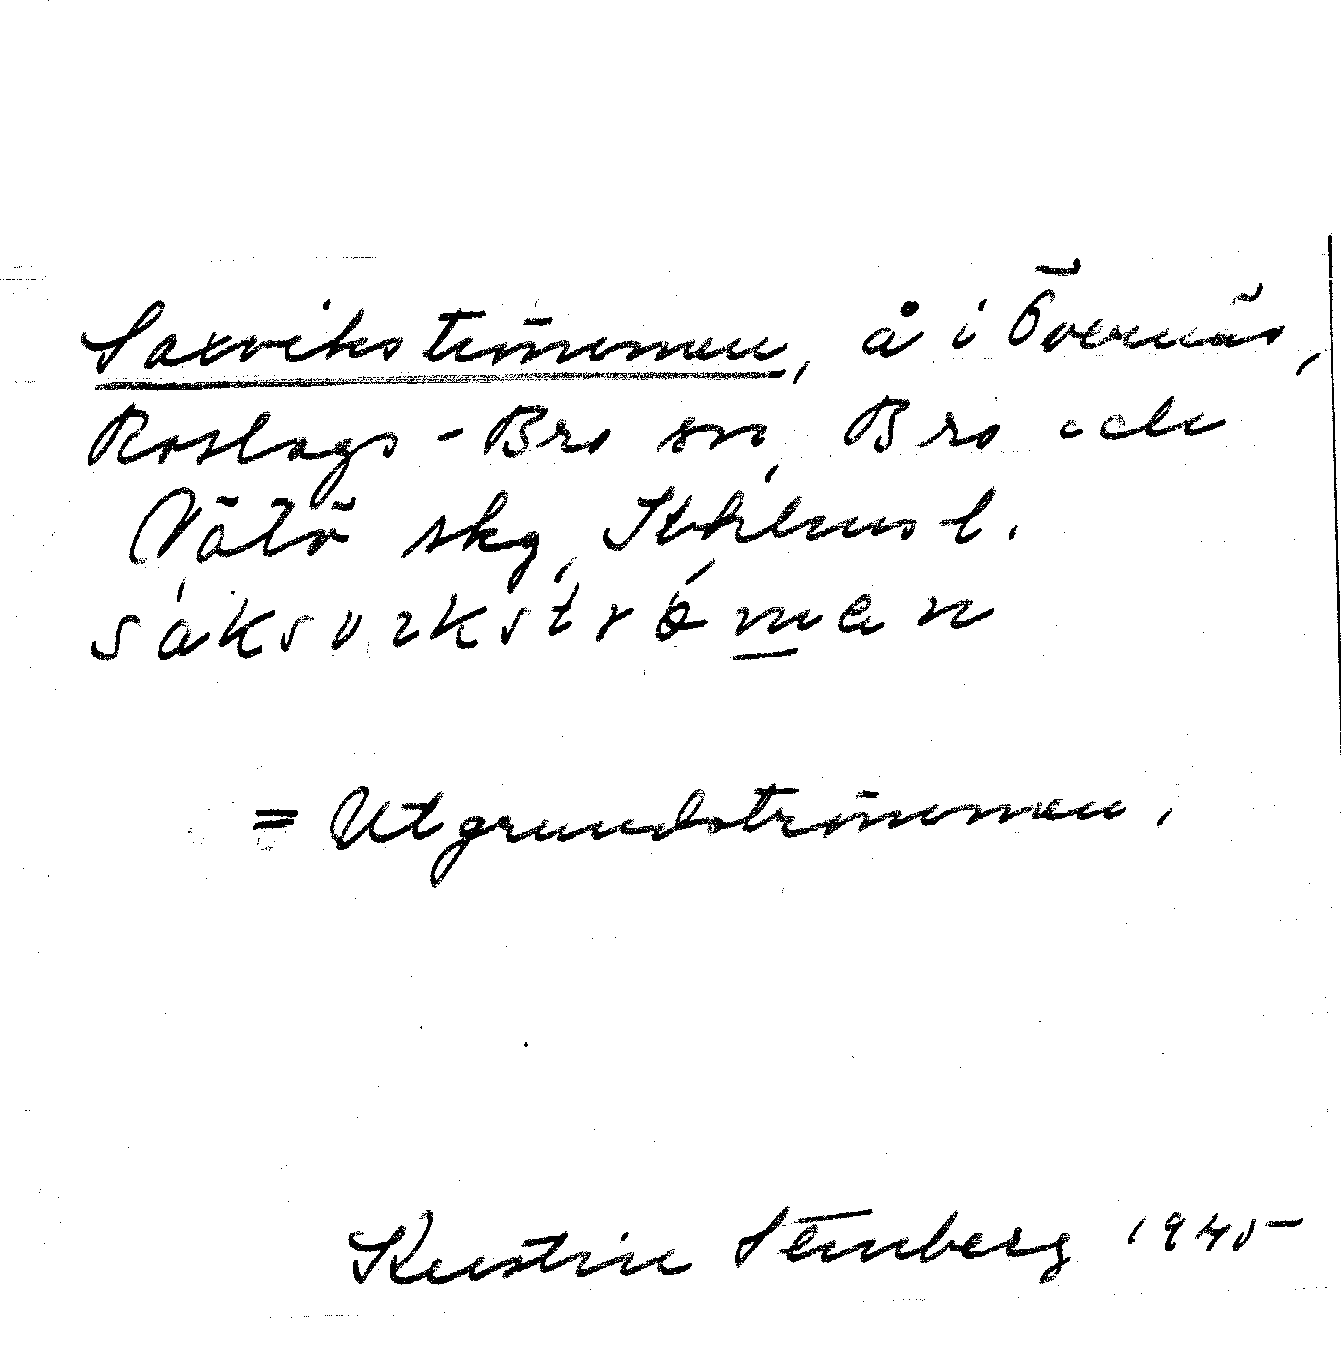 Saxvikströmmen, å i Övernäs,
Roslags-Bro sn, Bro och
Vätö skg, Sthlms l.
= Utgrundströmmen.
Kerstin Stenberg 1945